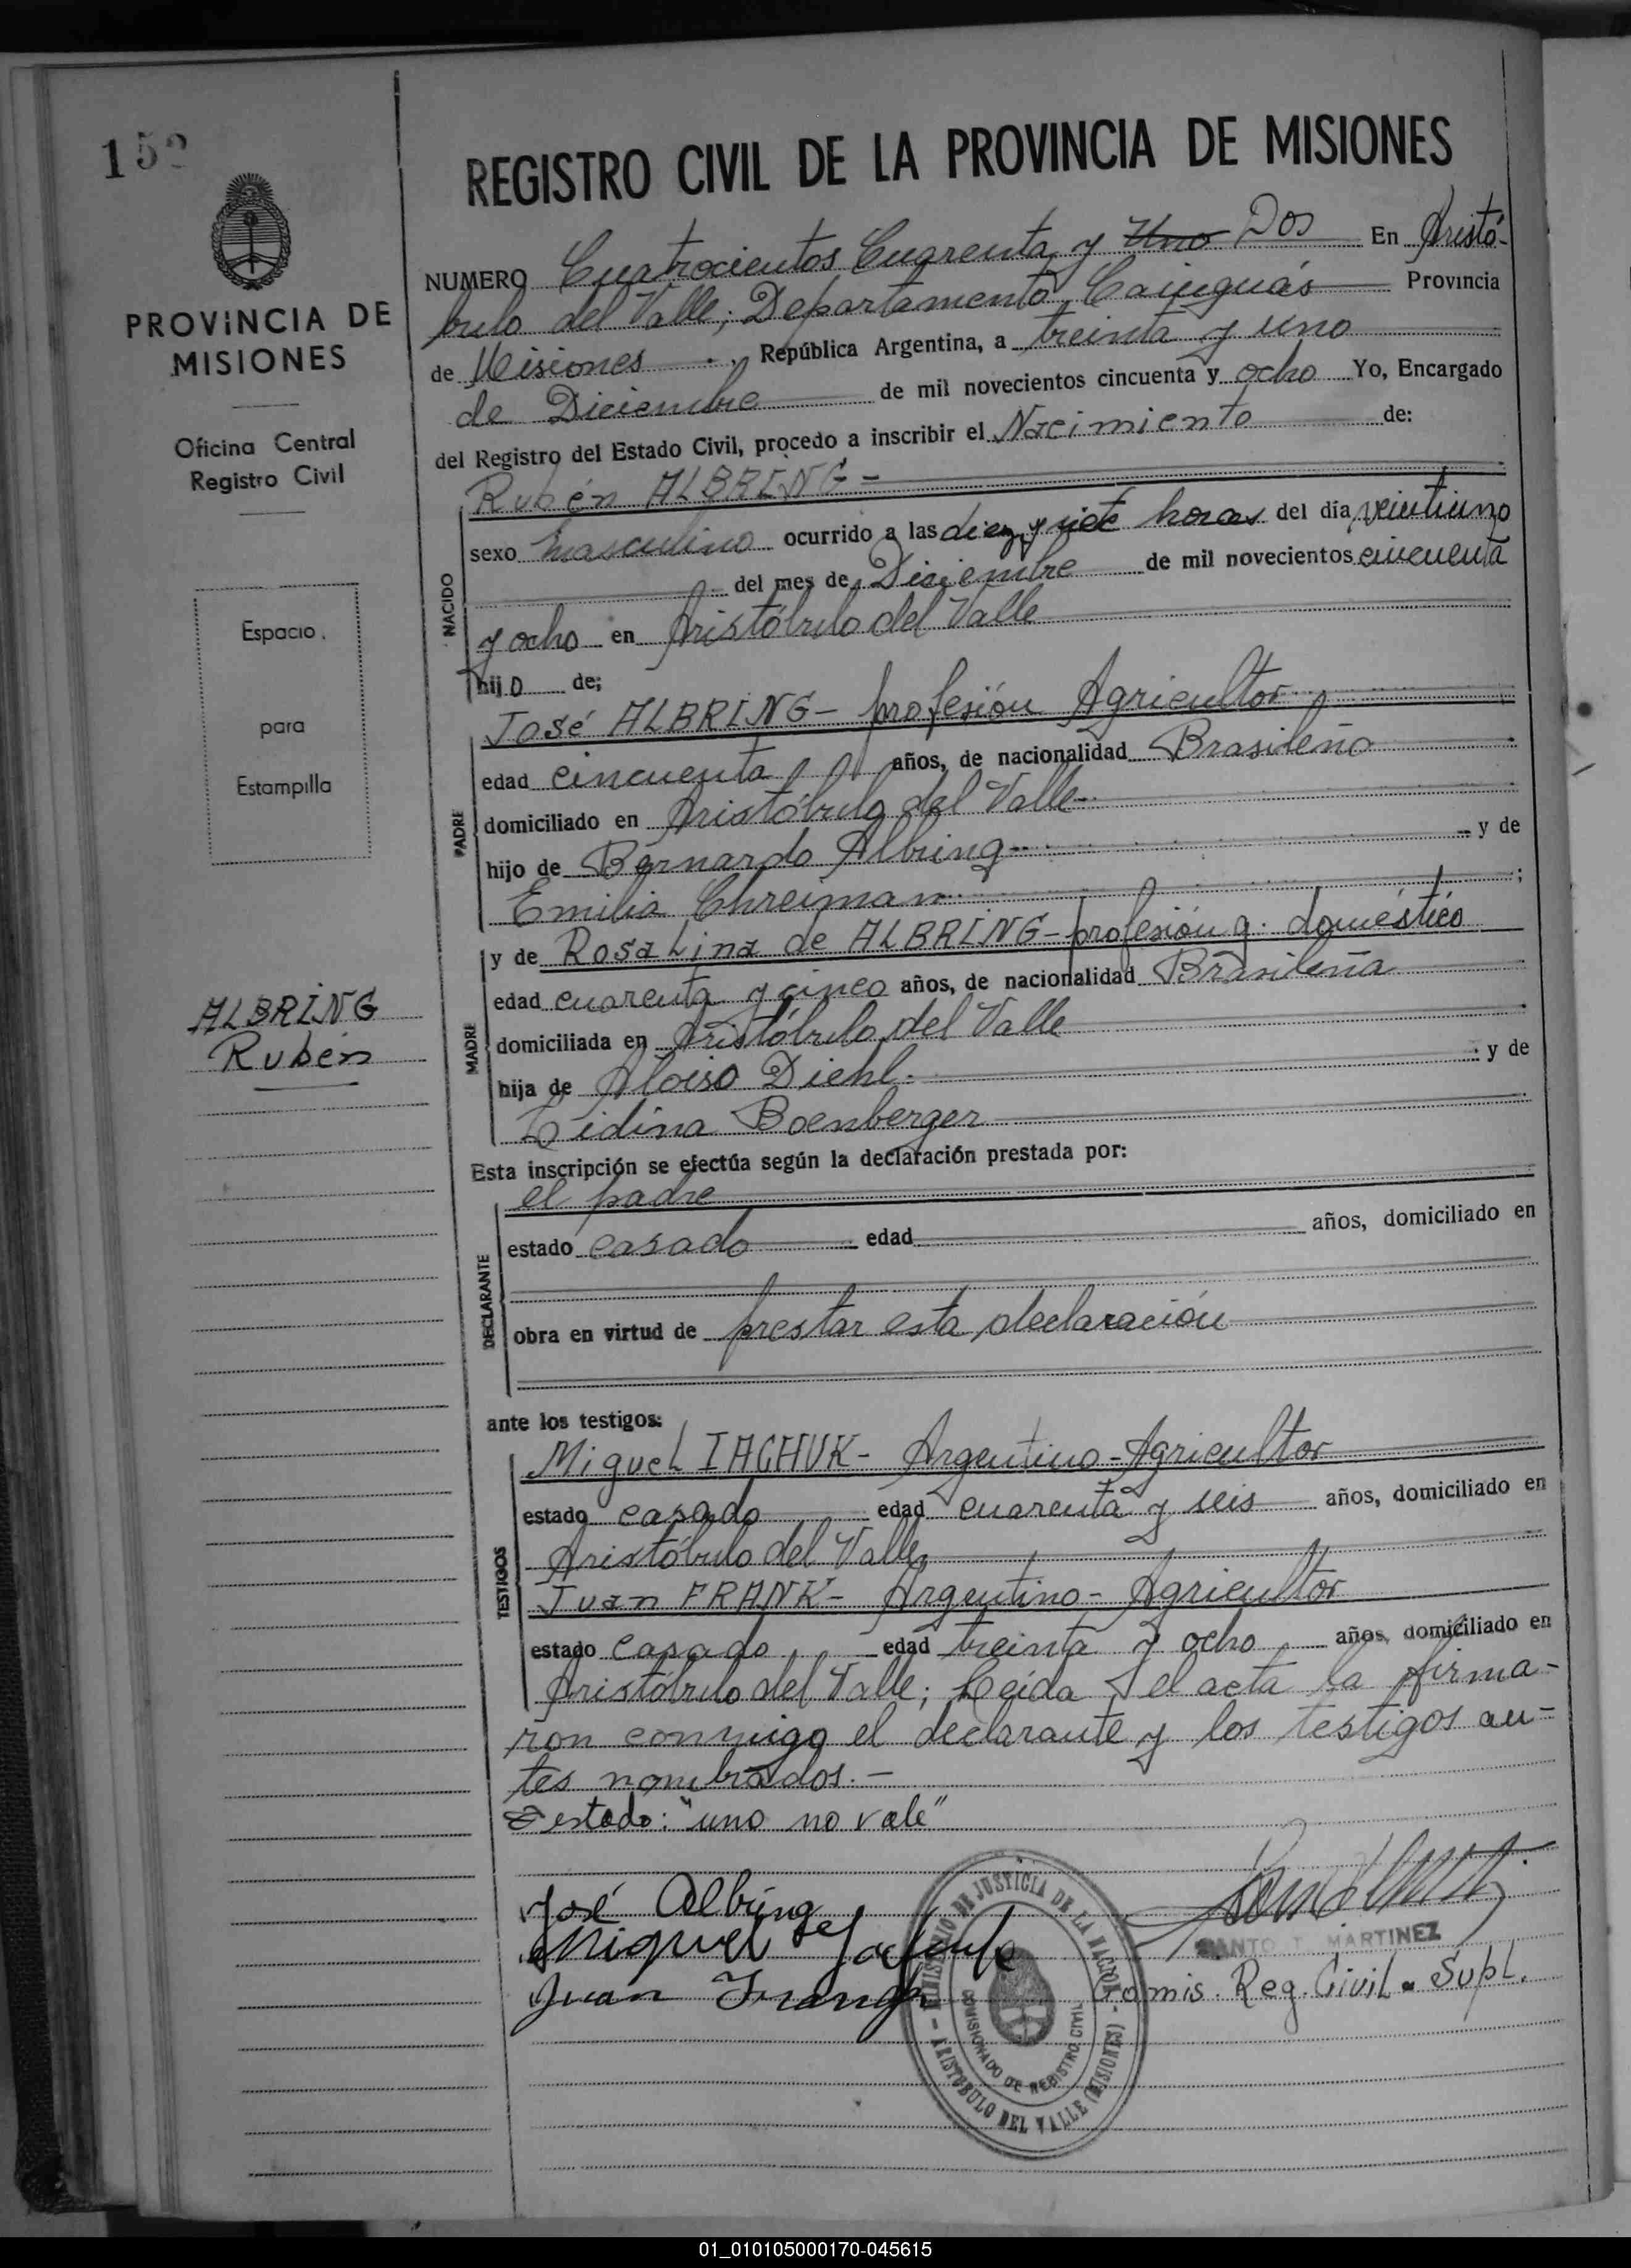 152
REGISTRO CIVIL DE LA PROVINCIA DE MISIONES
PROVINCIA DE
MISIONES
Oficina Central
Registro Civil
Espacio
para
Estampilla
ALBRING
Rubén
NUMERO Cuatrocientos Cuarenta y Uno Dos En Aristó-
bulo del Valle; Departamento Cainguás Provincia
de Misiones República Argentina, a treinta y uno
de Diciembre de mil novecientos cincuenta y ocho Yo, Encargado
del Registro del Estado Civil, procedo a inscribir el Nacimiento de:
NACIDO
Rubén ALBRING -
sexo masculino ocurrido a las diez y siete horas del día veintiuno
del mes de Diciembre de mil novecientos cincuenta
y ocho en Aristóbulo del Valle
hijo de;
PADRE
José ALBRING - profesión Agricultor
edad cincuenta años, de nacionalidad Brasileño
domiciliado en Aristóbulo del Valle
hijo de Bernardo Albring y de
Emilia Chreiman ;
MADRE
y de Rosalina de ALBRING - profesión q. doméstico
edad cuarenta y cinco años, de nacionalidad Brasileña
domiciliada en Aristóbulo del Valle
hija de Aloiso Diehl y de
Lidina Boenberger
Esta inscripción se efectúa según la declaración prestada por:
DECLARANTE
el padre
estado casado edad años, domiciliado en
obra en virtud de prestar esta declaración
ante los testigos:
TESTIGOS
Miguel IACHUK - Argentino - Agricultor
estado casado edad cuarenta y seis años, domiciliado en
Aristóbulo del Valle,
Juan FRANK - Argentino - Agricultor
estado casado edad treinta y ocho años, domiciliado en
Aristóbulo del Valle; Leída el acta la firma-
ron conmigo el declarante y los testigos an-
tes nombrados. -
Testado: "uno no vale"
José Albring
Miguel
Juan Frank
MINISTERIO DE JUSTICIA DE LA NACION
COMISIONADO DE REGISTRO CIVIL
ARISTOBULO DEL VALLE (MISIONES)
SANTO T. MARTINEZ
Comis. Reg. Civil - Supl.
01_010105000170-045615